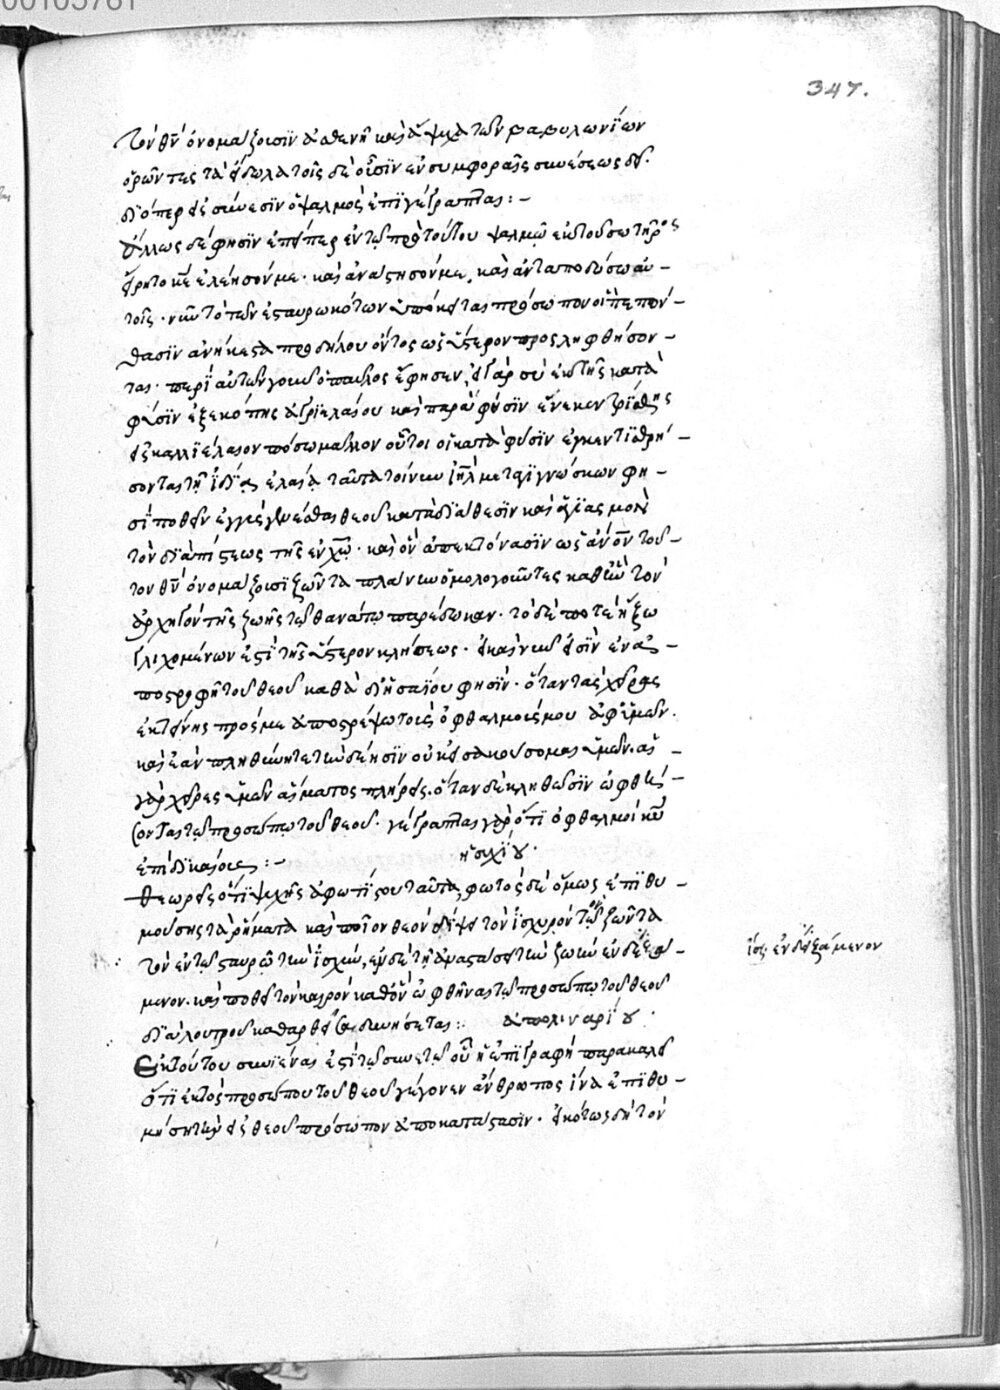 00105781
347.
τὸν θν ὀνομάζουσϊν ἀσθενῆ καὶ ἄψυχα τῶν βαβυλωνΐων
ὁρῶντες τὰ εἴδωλα τοῖς δὲ οὖσϊν ἐν συμφοραῖς συνέσεως δεῖ.
δϊόπερ εἰς σύνεσϊν ὁ ψαλμὸς ἐπϊγέγραπται :–
ἄλλως δέ φησϊν ἐπείπερ ἐν τῷ πρὸ τούτου ψαλμῷ ἐκ τοῦ σωτῆρος
εἴρητο κε ἐλέησόν με· καὶ ἀνάστησόν με, καὶ ἀνταποδώσω αὐ–
τοῖς· νῦν τὸ τῶν ἐσταυρωκότων ὑπόκειται πρόσωπον οἳ πεπόν–
θασϊν ἀνήκεστα προδήλου ὄντος ὡς ὕστερον προσληφθήσον–
ται· περὶ αὐτῶν γοῦν ὁ παῦλος ἔφησεν, εἰ γὰρ σὺ ἐκ τῆς κατὰ
φύσϊν ἐξεκόπης ἀγρϊελαίου καὶ παρὰ φύσϊν ἐνεκεντρίσθης
εἰς καλλϊέλαιον πόσῳ μᾶλλον οὗτοι οἱ κατὰ φύσϊν ἐγκεντρϊσθή–
σονται τῇ ἰδίᾳ ἐλαίᾳ ταῦτα τοίνυν ιηλ μεταγϊγνώσκων φη–
σὶ ποθεῖν ἐγγὺς γενέσθαι θεοῦ κατὰ δϊάθεσϊν καὶ ἁγίας μονὰς
τὸν δϊὰ πίστεως τῆς ἐν χω· καὶ ὃν ἀπεκτόνασϊν ὡς ἄνον τοῦ–
τον θν ὀνομάζουσϊ ζῶντα πλάνην ὁμολογοῦντες καθ' ἣν τὸν
ἀρχηγὸν τῆς ζωῆς τῷ θανάτῳ παρέδωκαν· τὸ δὲ πότε ἥξω
γλιχομένων ἐστὶ τῆς ὕστερον κλήσεως· εἰ καὶ νῦν εἰσὶν ἐν ἀ–
ποστροφῇ τοῦ θεοῦ καθὰ δι' ἡσαΐου φησὶν· ὅταν τὰς χεῖρας
ἐκτείνης πρός με ἀποστρέψω τοὺς ὀφθαλμούς μου ἀφ' ὑμῶν.
καὶ ἐὰν πληθύνητε τὴν δέησϊν οὐκ εἰσακούσομαι ὑμῶν. αἱ –
γὰρ χεῖρες ὑμῶν αἵματος πλήρεις. ὅταν δὲ κληθῶσϊν ὀφθεί–
σονται τῷ προσώπῳ τοῦ θεοῦ· γέγραπται γὰρ ὅτϊ ὀφθαλμοὶ κυ
ἐπὶ δϊκαίους :–
ἡσυχίου·
θεωρεῖς ὅτϊ ψυχῆς ἀφωτίστου ταῦτα, φωτὸς δὲ ὅμως ἐπϊθυ–
μούσης τὰ ῥήματα καὶ ποῖον θεὸν διψᾷ τὸν ἰσχυρόν τε ζῶντα
τὸν ἐν τῷ σταυρῷ τὴν ἰσχὺν, ἐν δὲ τῇ ἀναστάσει τὴν ζωὴν ἐνδεξά–
μενον. καὶ ποθεῖ τὸν καιρὸν καθ' ὃν ὀφθῆναι τῷ προσώπῳ τοῦ θεοῦ
δϊὰ λουτροῦ καθαρθεῖσα δυνήσεται :· ἀπολιναρίου·
Ἐκ τούτου συνϊέναι ἐστὶ τῷ συνετῷ οὗ ἡ ἐπϊγραφὴ παρακαλεῖ
ὅτϊ ἐκτὸς προσώπου τοῦ θεοῦ γέγονεν ἄνθρωπος ἵνα ἐπϊθυ–
μήσῃ τὴν εἰς θεοῦ πρόσωπον ἀποκατάστασϊν· εἰκότως δὴ τὸν
ἴσ. ἐνδειξάμενον